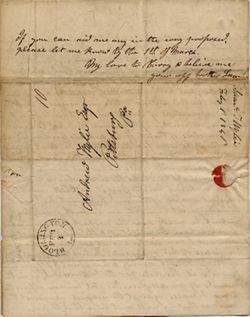 If you can aid me any in the way proposed,
please let me know by the 1st of March.
My love to & believe me
your aff brother Sam
10
Andrew Wylie Esqr
Pittsburg
Pa.
BLOOMINGTON
Wylie